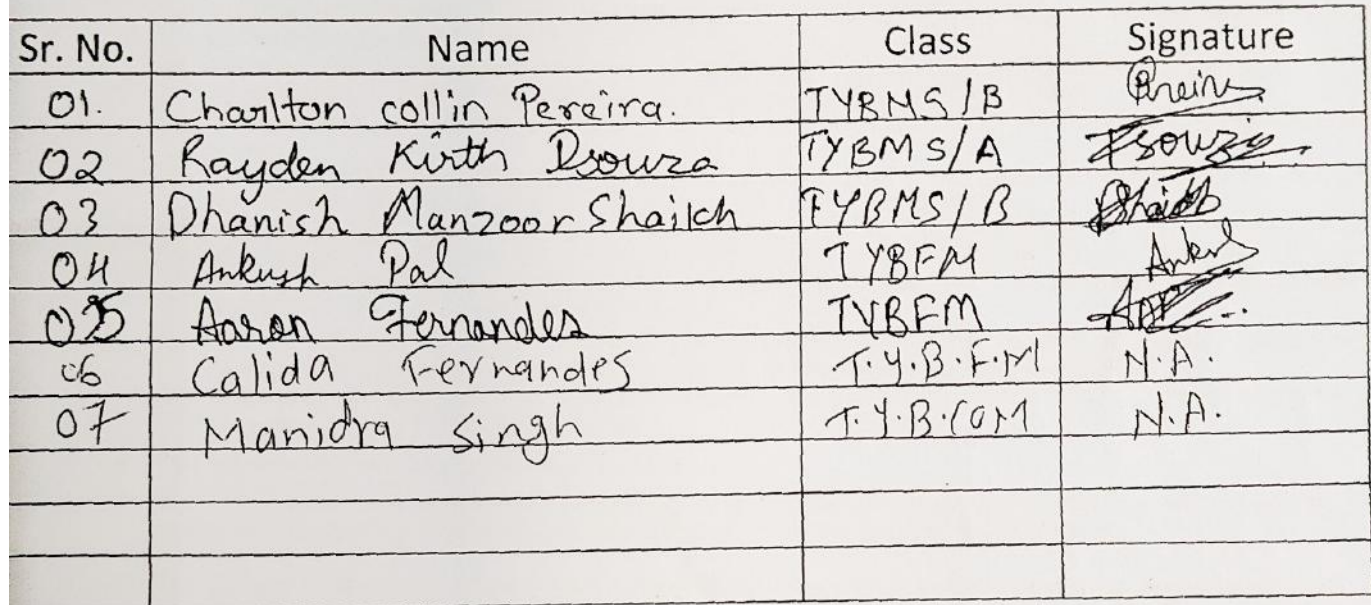 Sr. No. Name Class Signature
01. Charlton collin Pereira. TYBMS/B Preira
02 Rayden Kirth Dsouza TYBMS/A Dsouza
03 Dhanish Manzoor Shaikh TYBMS/B Shaikh
04 Ankush Pal TYBFM Ankush
05 Aaron Fernandes TYBFM
06 Calida Fernandes T.Y.B.F.M N.A.
07 Manidra Singh T.Y.B.COM N.A.